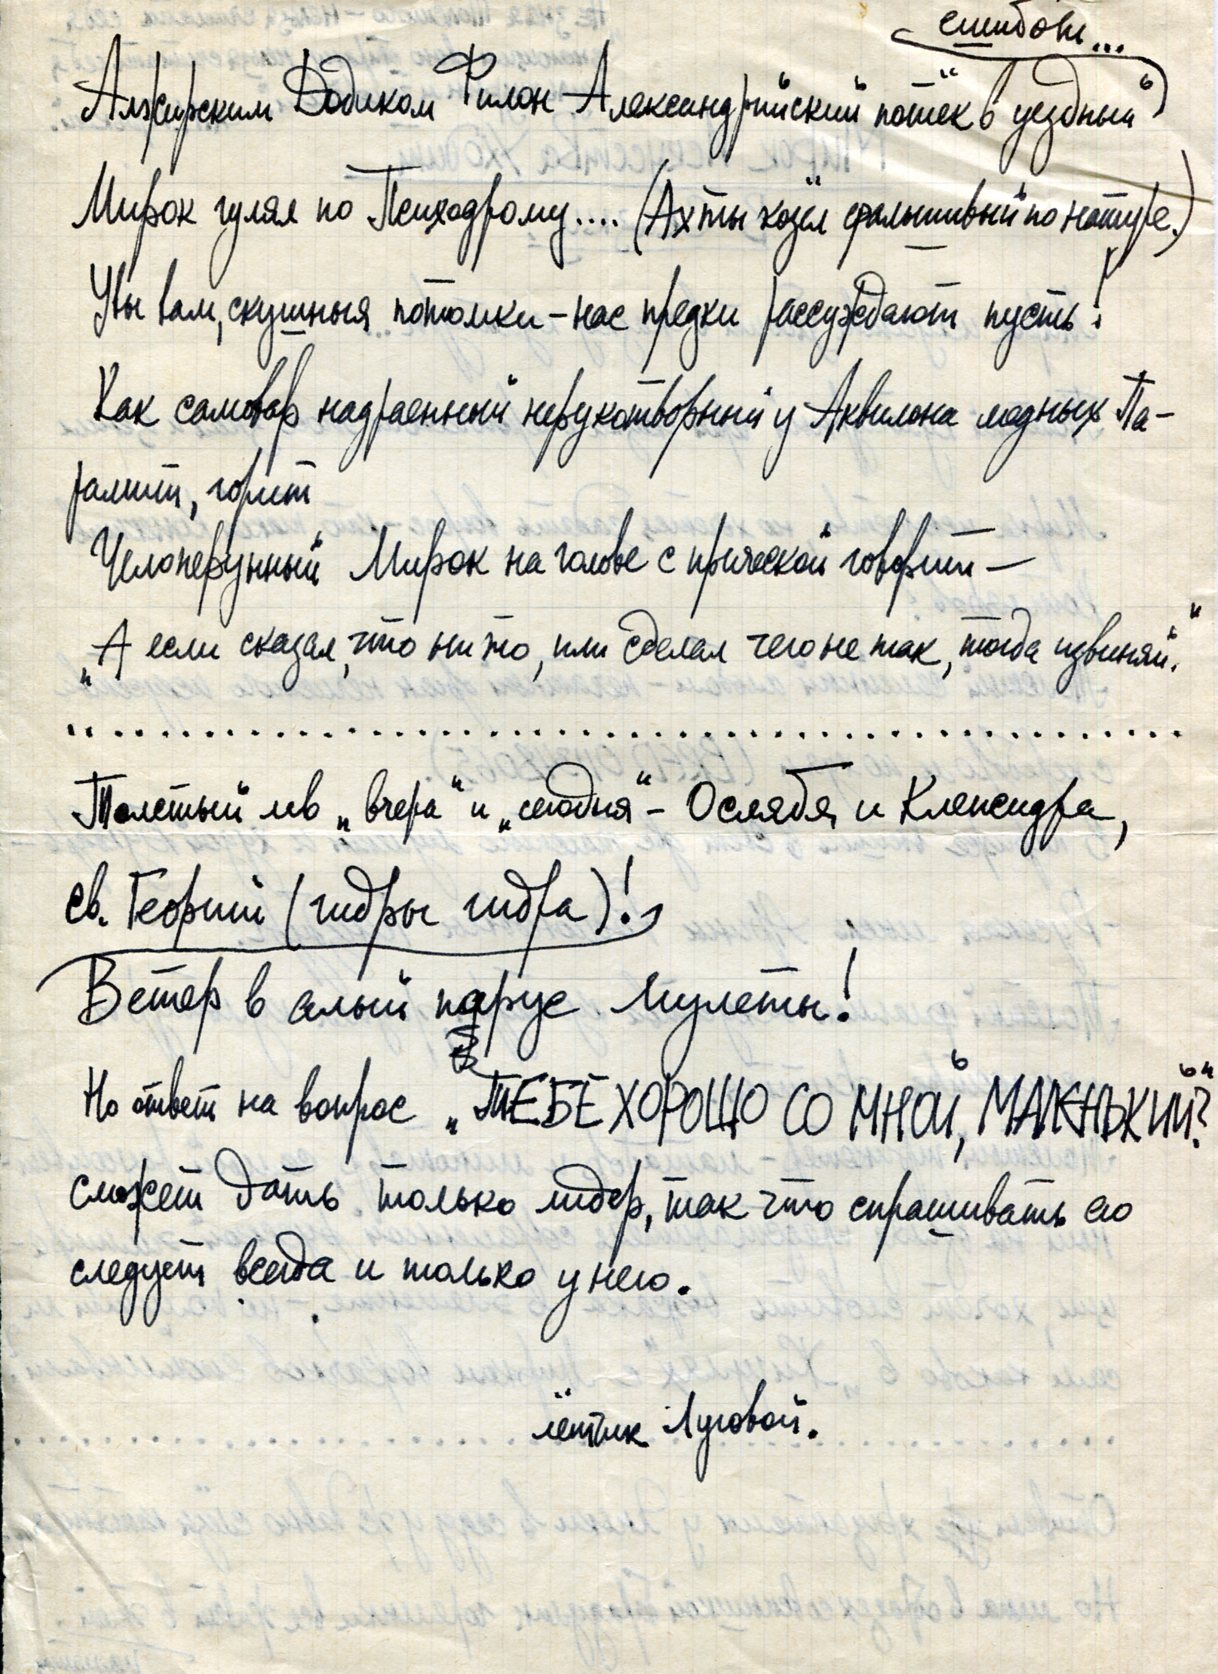 Алжирским Додиком Филон Александрийский потёк в уездный"
сшибокъ...
Мирок гулял по Психодрому.... (Ах ты козёл фальшивый по натуре.)
Увы вам, скушныя потомки – нас предки рассуждают пусть!
Как самовар надраенный нерукотворный у Аквилона медных Па-
рамит, горит
Челоперунный Мирок на голове с прической говорит –
„А если сказал, что ни то, или сделал чего не так, тогда извиняй."
Толстый лев „вчера" и „сегодня" – Ослябя и Клепсидра,
св. Георгий (гидры гидра)!
Ветер в алый парус Мулеты!
Но ответ на вопрос „ТЕБЕ ХОРОШО СО МНОЙ, МАЛЕНЬКИЙ?"
сможет дать только лидер, так что спрашивать ею
следует всегда и только у него.
лётчик Луговой.